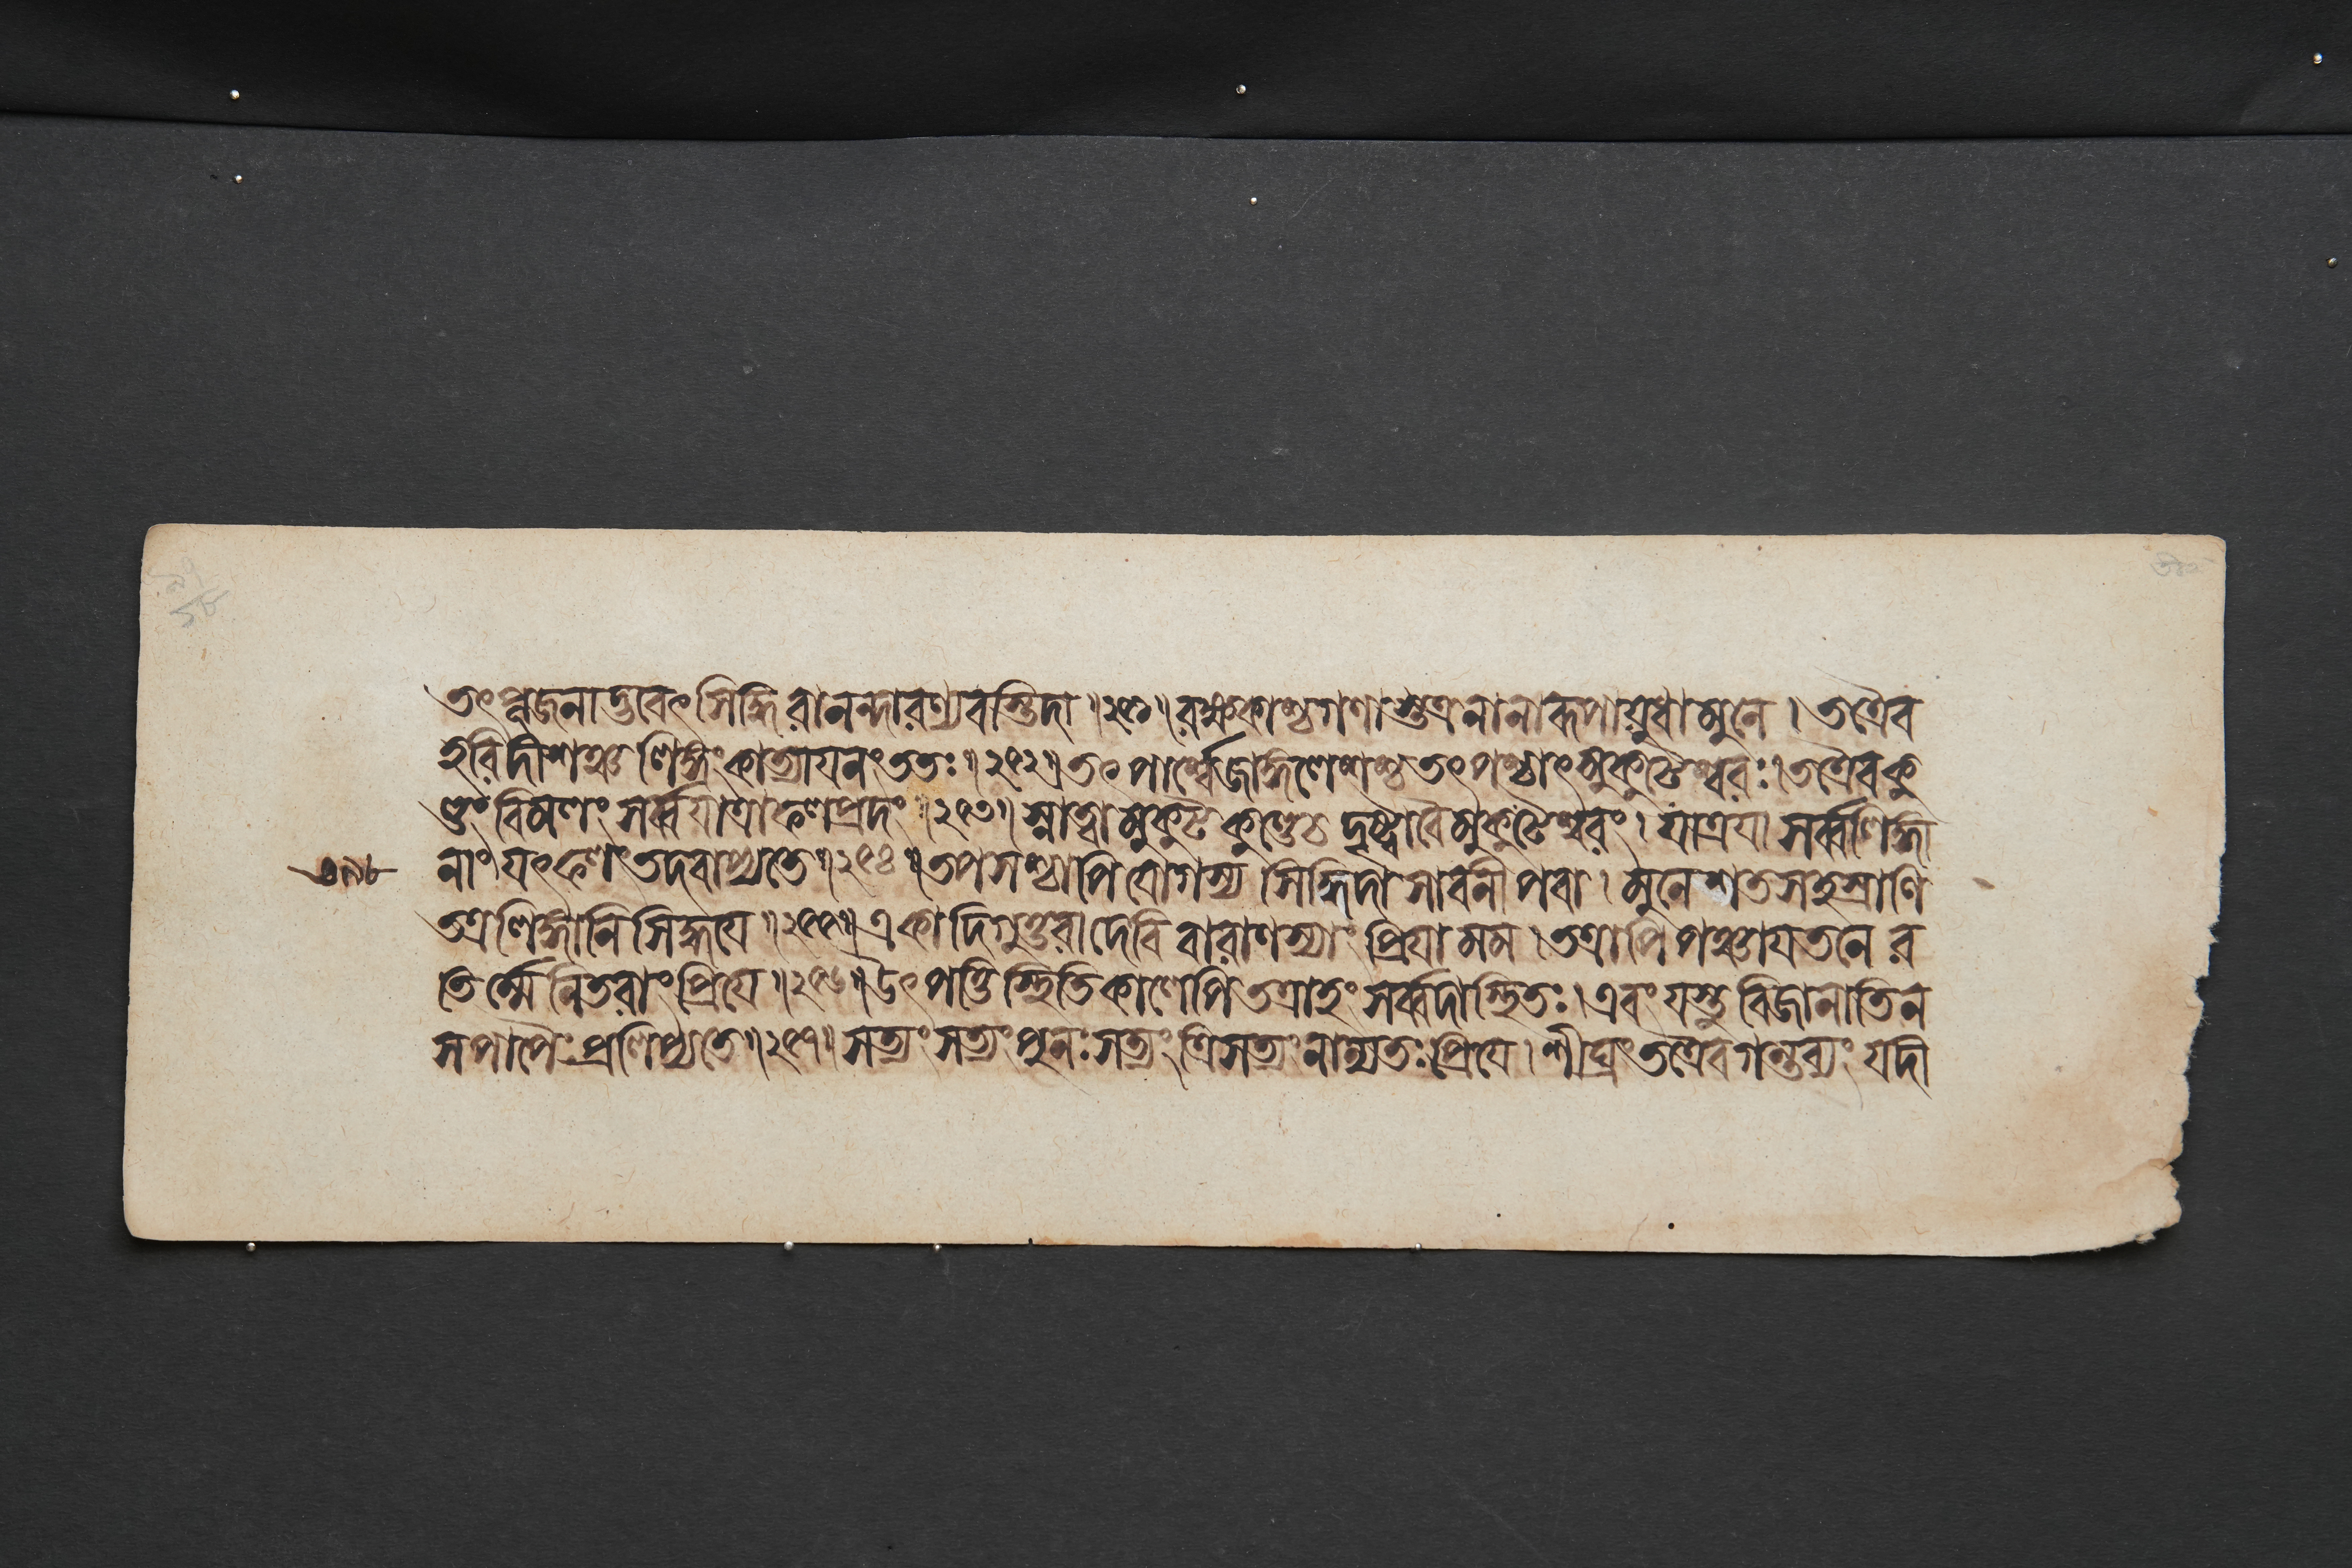 তৎপূজনাদ্ভবেৎ সিদ্ধিরানন্দারণ্যবস্তিদা ॥২৫১॥ ব্রহ্মকাণ্ঠগণাস্তত্র নানারূপায়ুধা মুনে । তত্রৈব
হরিদীশঞ্চ লিঙ্গং কাত্যায়নং ততঃ ॥২৫২॥ তৎপার্শ্বে জাঙ্গলেশশ্চ তৎপশ্চাৎ মুকুটেশ্বরঃ । তত্রৈব কু
ণ্ডং বিমলং সর্ব্বযাত্রাফলপ্রদং ॥২৫৩॥ স্নাত্বা মুকুটকুণ্ডে দৃষ্ট্বা বৈ মুকুটেশ্বরং । যাত্রয়া সর্ব্বলিঙ্গা
নাং যৎফলং তদবাপ্যতে ॥২৫৪॥ তপসশ্চাপি যোগস্য সিদ্ধিদা সাবনী পরা । মুনে শতসহস্রাণি
তত্র লিঙ্গানি সিদ্ধয়ে ॥২৫৫॥ একা দিগুত্তরা দেবি বারাণস্যাং প্রিয়া মম । তত্রাপি পঞ্চায়তনে র
তির্ম্মে নিতরাং প্রিয়ে ॥২৫৬॥ উৎপত্তিস্থিতিকালেপি তত্রাহং সর্ব্বদা স্থিতঃ । এবং যস্তু বিজানাতি ন
স পাপৈঃ প্রলিপ্যতে ॥২৫৭॥ সত্যং সত্যং পুনঃ সত্যং ত্রিসত্যং নান্যতঃ প্রিয়ে । শীঘ্রং তত্রৈব গন্তব্যং যদী
৩৯৮